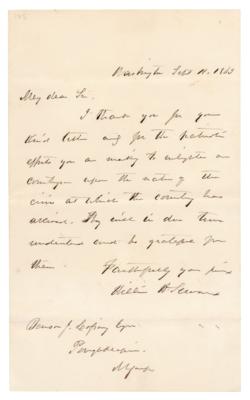 Washington Sept 11. 1863
My dear Sir.
I thank you for your
kind letter and for the patriotic
efforts you are making to enlighten our
countrymen upon the nature of the
crisis at which the country has
arrived. They will in due time
understand and be grateful for
them.
Faithfully your friend
William H Seward
Benson J. Lossing Esqr
Poughkeepsie
N York